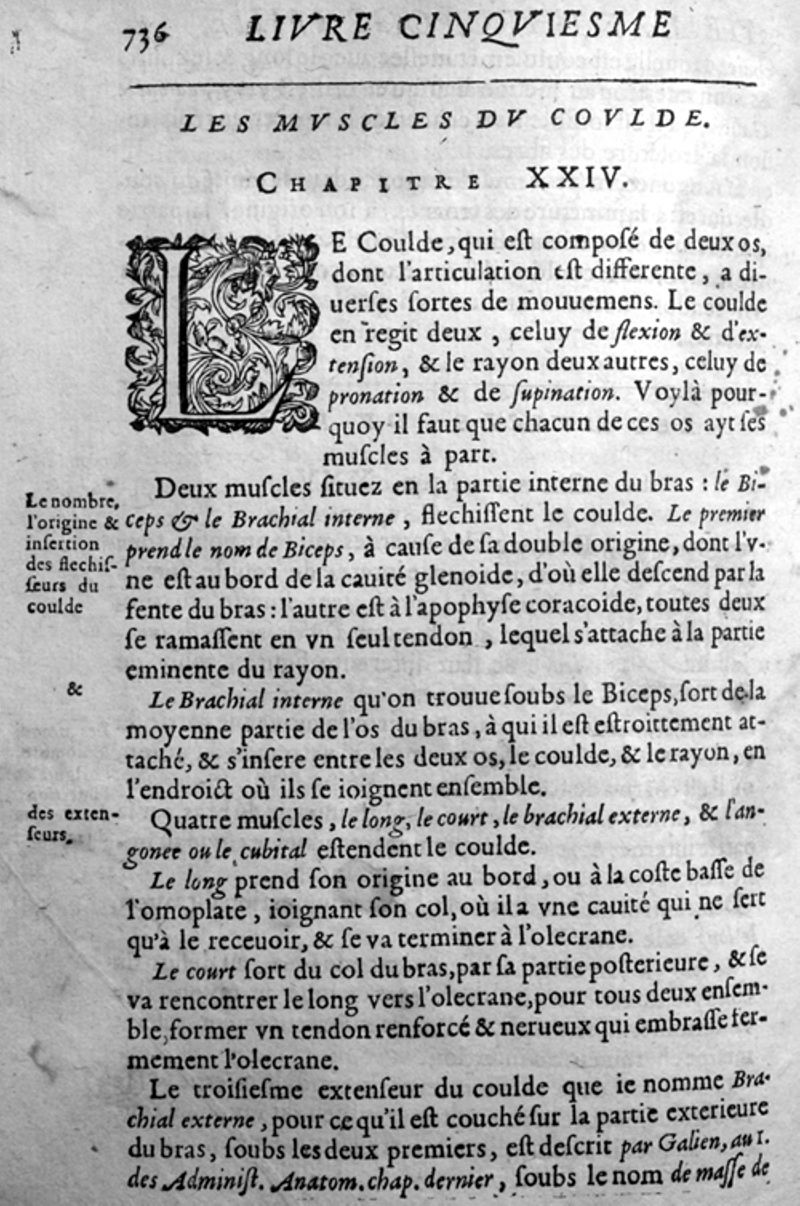 736 LIVRE CINQVIESME
LES MVSCLES DV COVLDE.
CHAPITRE XXIV.
LE Coulde, qui eſt compoſé de deux os,
dont l'articulation eſt differente, a di-
uerſes ſortes de mouuemens. Le coulde
en regit deux, celuy de flexion & d'ex-
tenſion, & le rayon deux autres, celuy de
pronation & de ſupination. Voylà pour-
quoy il faut que chacun de ces os ayt ſes
muſcles à part.
Deux muſcles ſituez en la partie interne du bras : le Bi-
ceps & le Brachial interne, flechiſſent le coulde. Le premier
prend le nom de Biceps, à cauſe de ſa double origine, dont l'v-
ne eſt au bord de la cauité glenoide, d'où elle deſcend par la
fente du bras : l'autre eſt à l'apophyſe coracoide, toutes deux
ſe ramaſſent en vn ſeul tendon, lequel s'attache à la partie
eminente du rayon.
Le nombre,
l'origine &
inſertion
des flechiſ-
ſeurs du
coulde
&
Le Brachial interne qu'on trouue ſoubs le Biceps, ſort de la
moyenne partie de l'os du bras, à qui il eſt eſtroittement at-
taché, & s'inſere entre les deux os, le coulde, & le rayon, en
l'endroict où ils ſe ioignent enſemble.
des exten-
ſeurs.
Quatre muſcles, le long, le court, le brachial externe, & l'an-
gonee ou le cubital eſtendent le coulde.
Le long prend ſon origine au bord, ou à la coſte baſſe de
l'omoplate, ioignant ſon col, où il a vne cauité qui ne ſert
qu'à le receuoir, & ſe va terminer à l'olecrane.
Le court ſort du col du bras, par ſa partie poſterieure, & ſe
va rencontrer le long vers l'olecrane, pour tous deux enſem-
ble, former vn tendon renforcé & nerueux qui embraſſe fer-
mement l'olecrane.
Le troiſieſme extenſeur du coulde que ie nomme Bra-
chial externe, pour ce qu'il eſt couché ſur la partie exterieure
du bras, ſoubs les deux premiers, eſt deſcrit par Galien, au 1.
des Adminiſt. Anatom. chap. dernier, ſoubs le nom de maſſe de